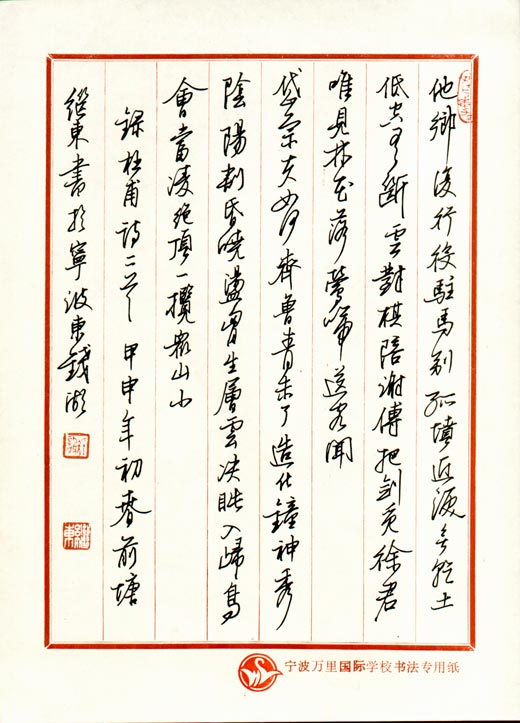 他鄉復行役駐馬别孤墳近淚無乾土
低空有斷雲對棋陪謝傅把劍覓徐君
唯見林花落鶯啼送客聞
岱宗夫如何齊魯青未了造化鐘神秀
陰陽割昏曉盪胷生層雲决眦入歸鳥
會當凌絕頂一攬衆山小
録杜甫詩二首 甲申年初春前塘
繼東書於寧波東錢湖
宁波万里国际学校书法专用纸